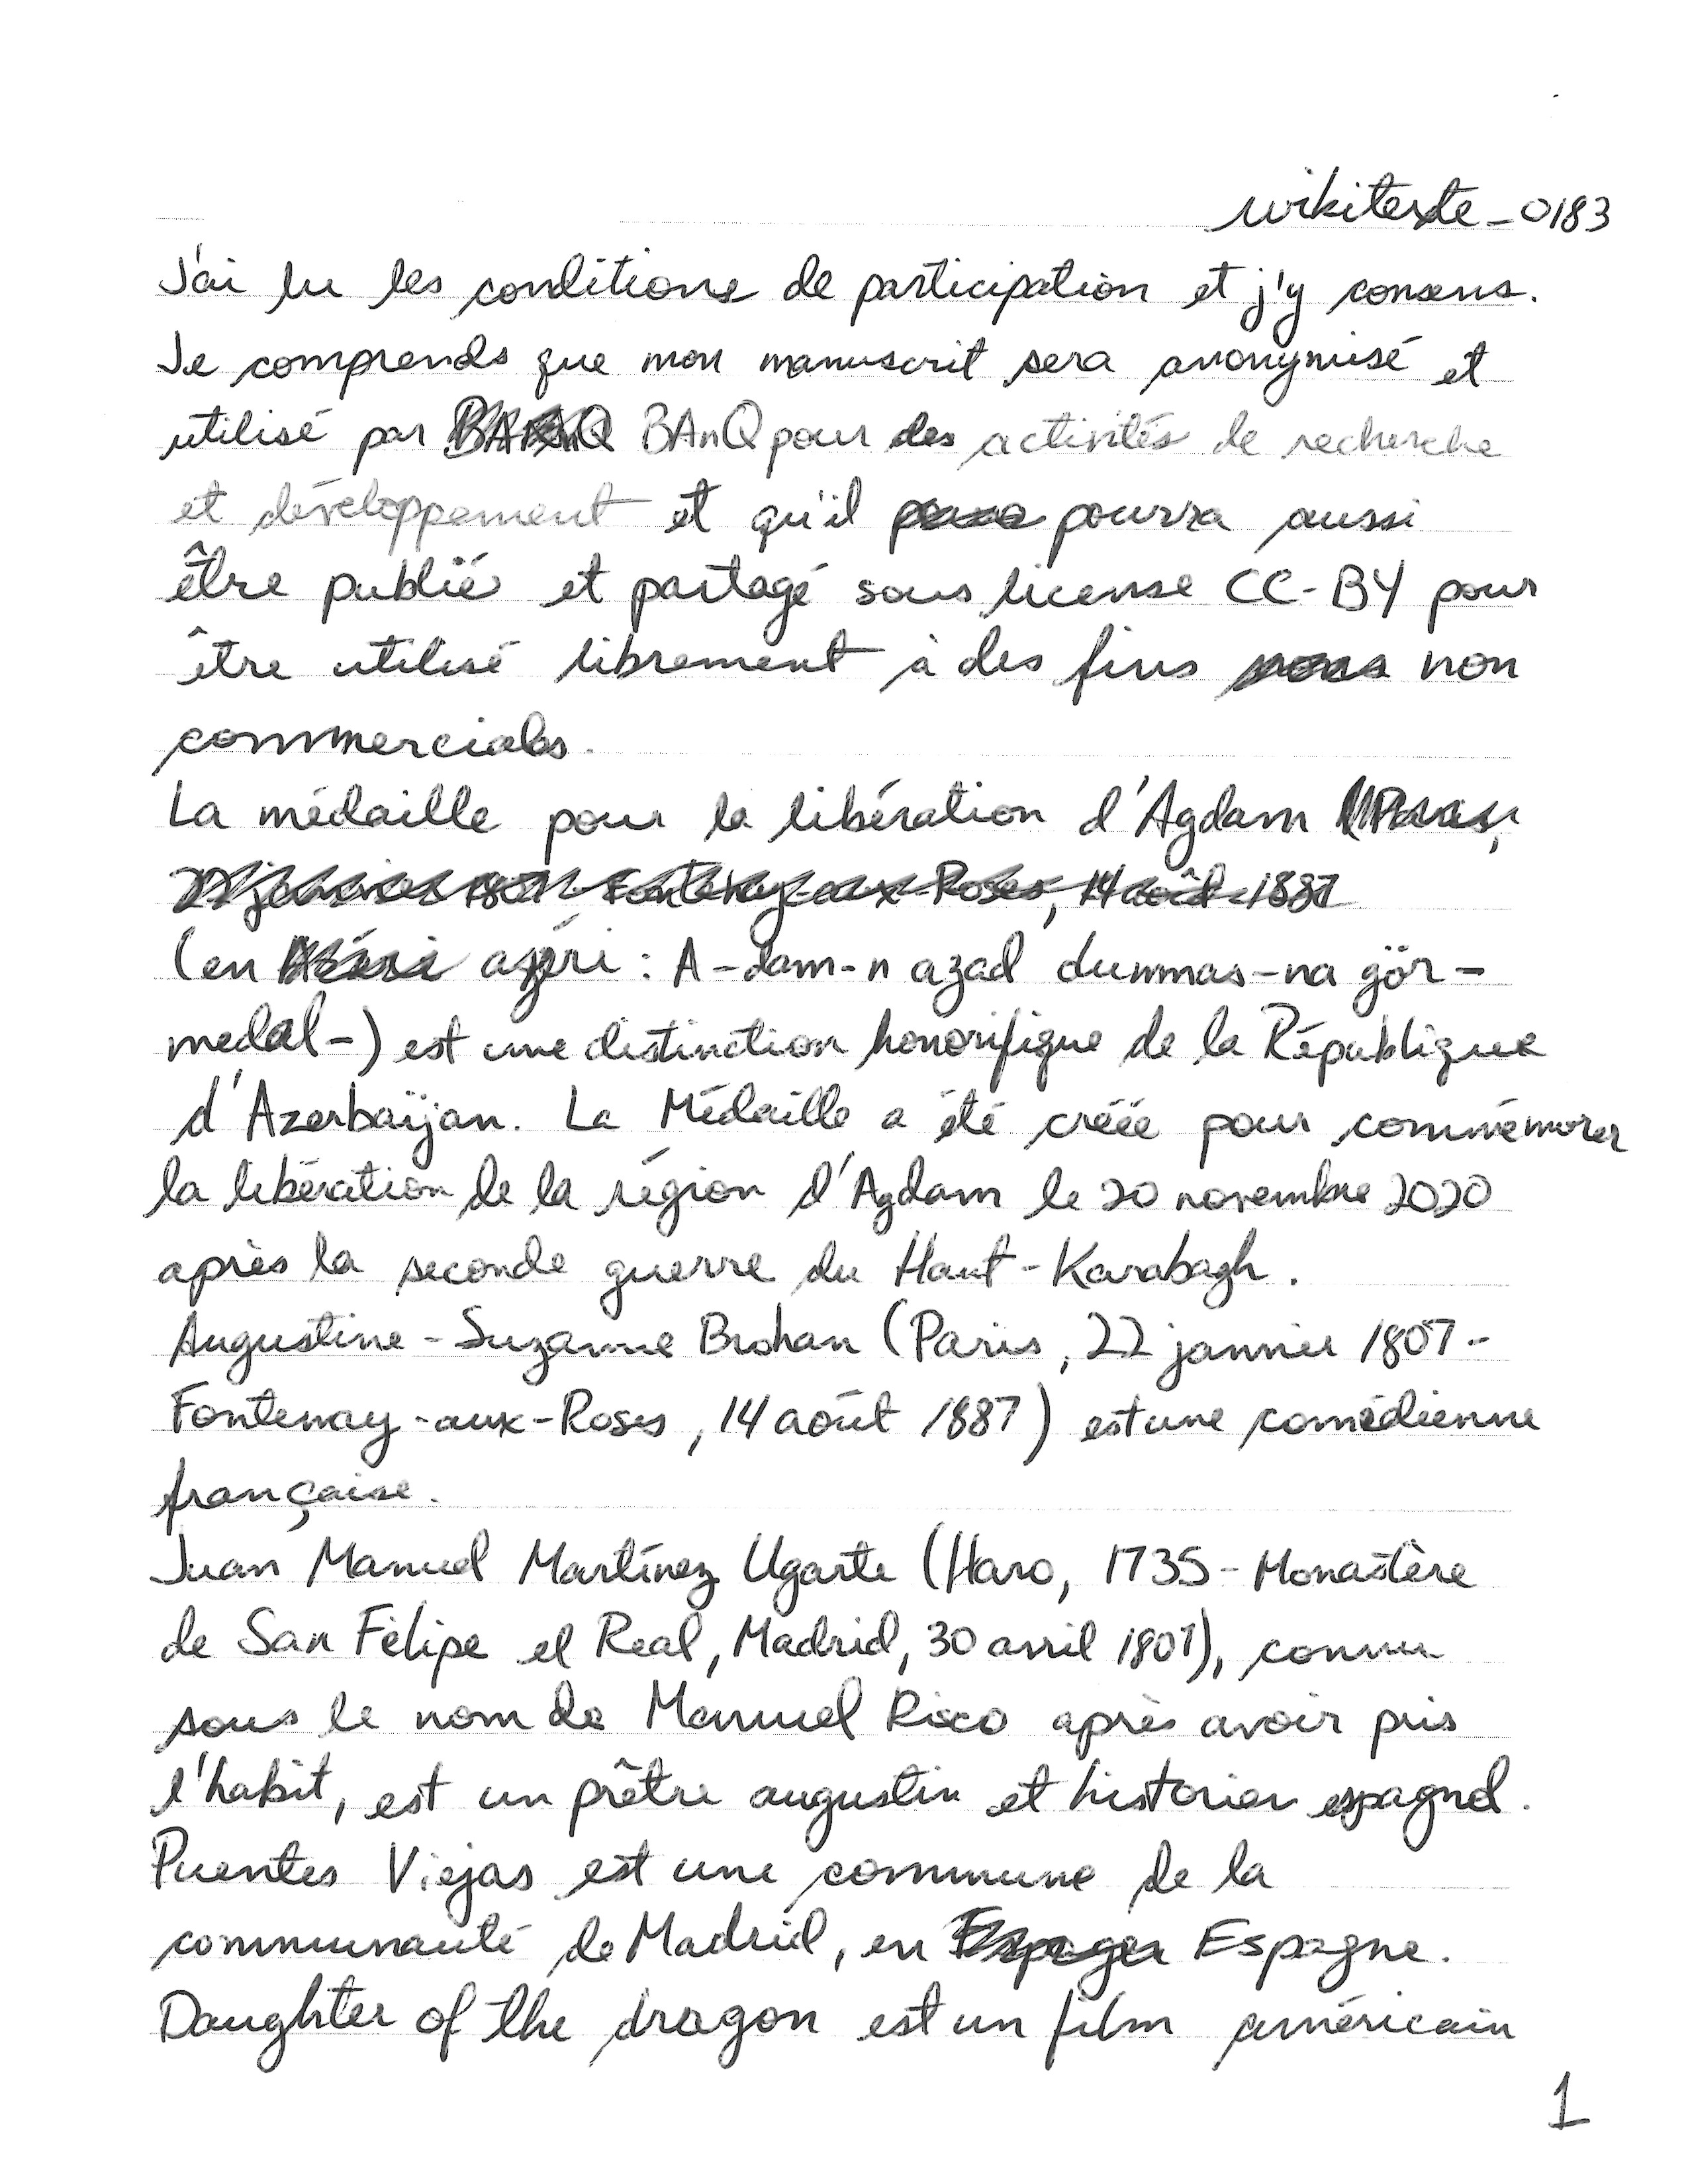 wikitexte-0183
J'ai lu les conditions de participation et j'y consens.
Je comprends que mon manuscrit sera anonymisé et
utilisé par BAnQ pour des activités de recherche
et développement et qu'il pourra aussi
être publié et partagé sous license CC-BY pour
être utilisé librement à des fins non
commerciales.
La médaille pour la libération d'Agdam
Fontenay-aux-Roses, 14 août 1887
(en azéri : A-dam-n azad dummas-na gör-
medal-) est une distinction honorifique de la République
d'Azerbaïjan. La Médaille a été créée pour commémorer
la libération de la région d'Agdam le 20 novembre 2020
après la seconde guerre du Haut-Karabagh.
Augustine-Suzanne Brohan (Paris, 22 janvier 1807-
Fontenay-aux-Roses, 14 août 1887) est une comédienne
française.
Juan Manuel Martínez Ugarte (Haro, 1735- Monastère
de San Felipe el Real, Madrid, 30 avril 1801), connu
sous le nom de Manuel Risco après avoir pris
l'habit, est un prêtre augustin et historien espagnol.
Puentes Viejas est une commune de la
communauté de Madrid, en Espagne.
Daughter of the dragon est un film américain
1